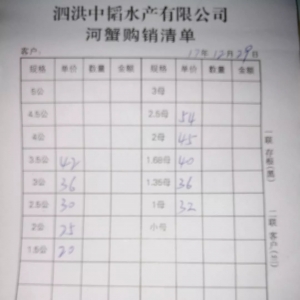 泗洪中韬水产有限公司
河蟹购销清单
客户: 17年12月29日
规格 单价 数量 金额 规格 单价 数量 金额
5公 3母
4.5公 2.5母 54
4公 2母 45
3.5公 42 1.68母 40
3公 36 1.35母 36
2.5公 30 1母 32
2公 25 小母
1.5公 20
一联 存根(黑)
二联 客户(红)